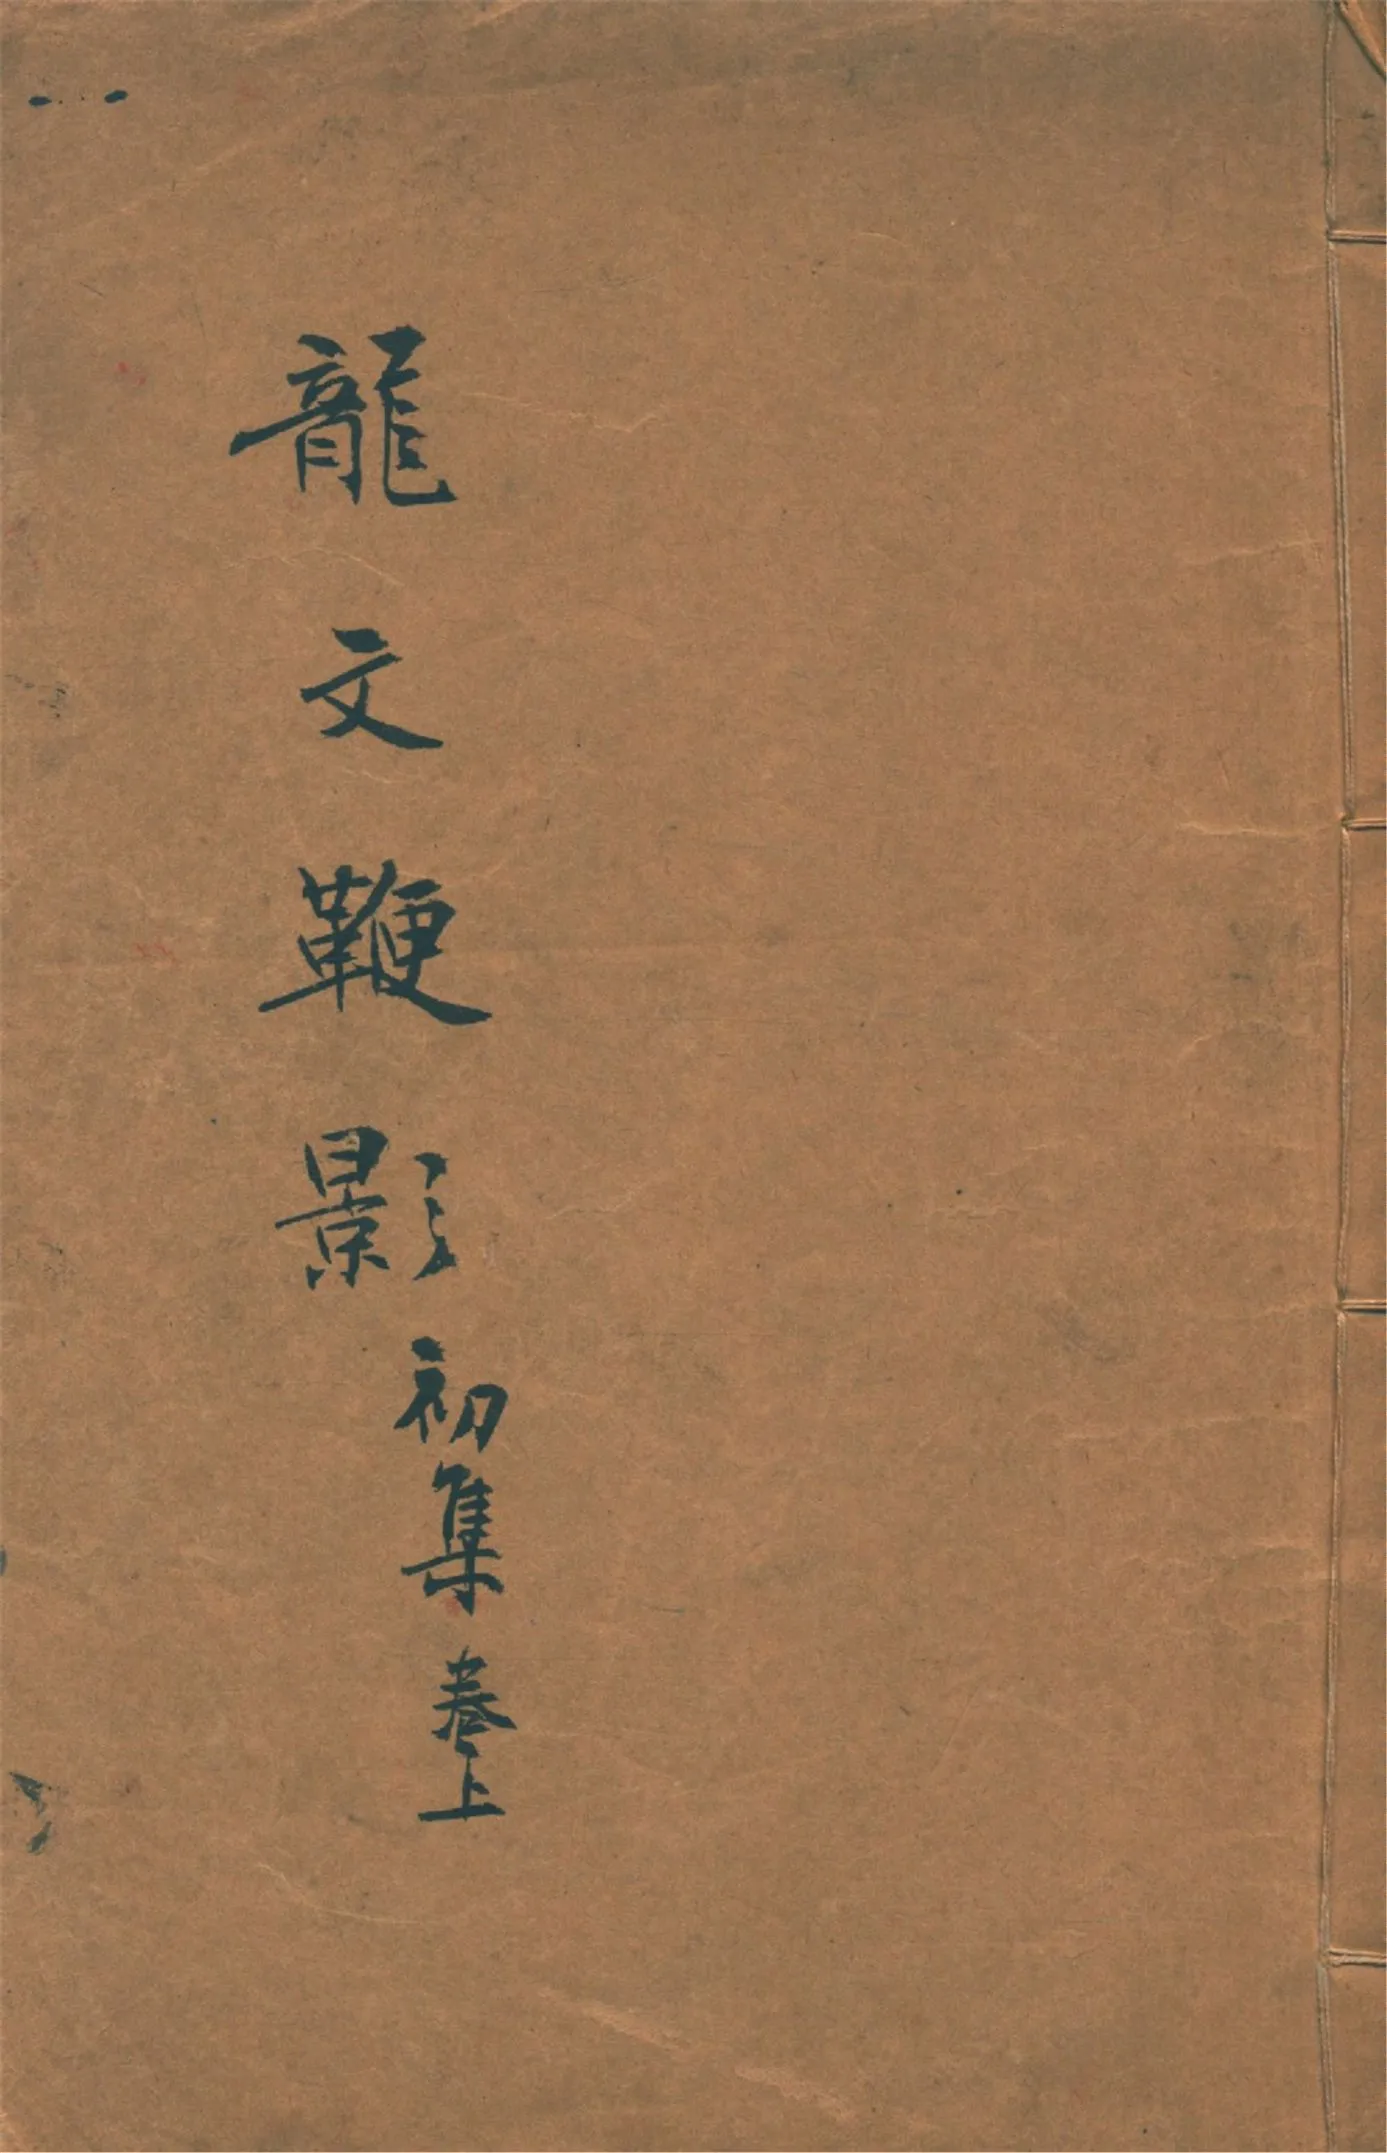 龍文鞭影
初集卷上